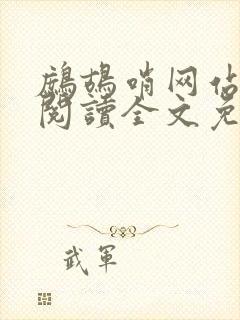 鷓鴣哨网佔
閱讀全文免
武軍